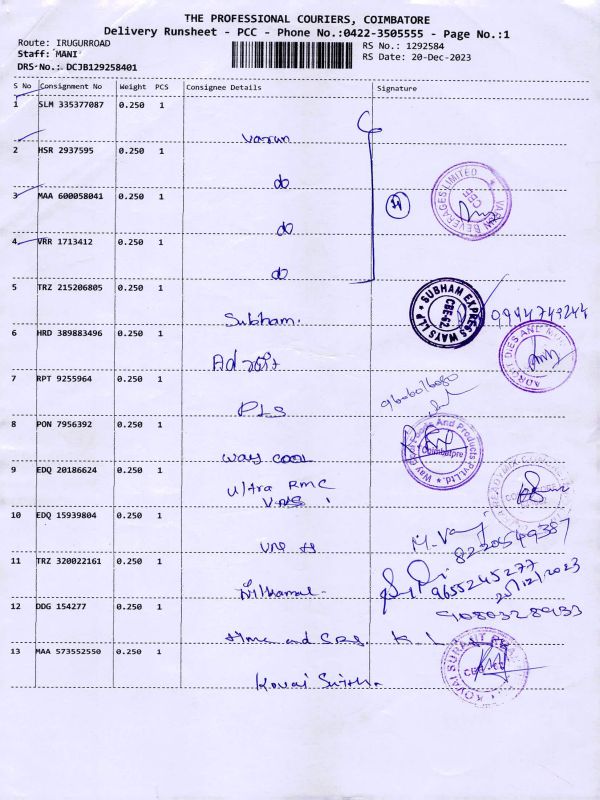 THE PROFESSIONAL COURIERS, COIMBATORE
Delivery Runsheet - PCC - Phone No.:0422-3505555 - Page No.:1
Route: IRUGURROAD
RS No.: 1292584
Staff: MANI
RS Date: 20-Dec-2023
DRS No.: DCJB129258401
S No Consignment No Weight PCS Consignee Details Signature
1 SLM 335377087 0.250 1
Varun
2 HSR 2937595 0.250 1
do
3 MAA 600058041 0.250 1
do
VARUN BEVERAGES LIMITED
CBE
4 VRR 1713412 0.250 1
do
5 TRZ 215206805 0.250 1
Subham.
SUBHAM EXPRESS WAYS LLP
CBE-62
9944749244
6 HRD 389883496 0.250 1
ADROIT DIES AND
7 RPT 9255964 0.250 1
PLS
9606016080
8 PON 7956392 0.250 1
way cool
Way Cool Foods And Products Pvt.Ltd.
Coimbatore
9 EDQ 20186624 0.250 1
Ultra RMC
10 EDQ 15939804 0.250 1
8220549387
11 TRZ 320022161 0.250 1
Nilkamal-
9655245277
20/12/2023
12 DDG 154277 0.250 1
9080328933
Home and CRS. K.
13 MAA 573552550 0.250 1
Kovai
KOVAI